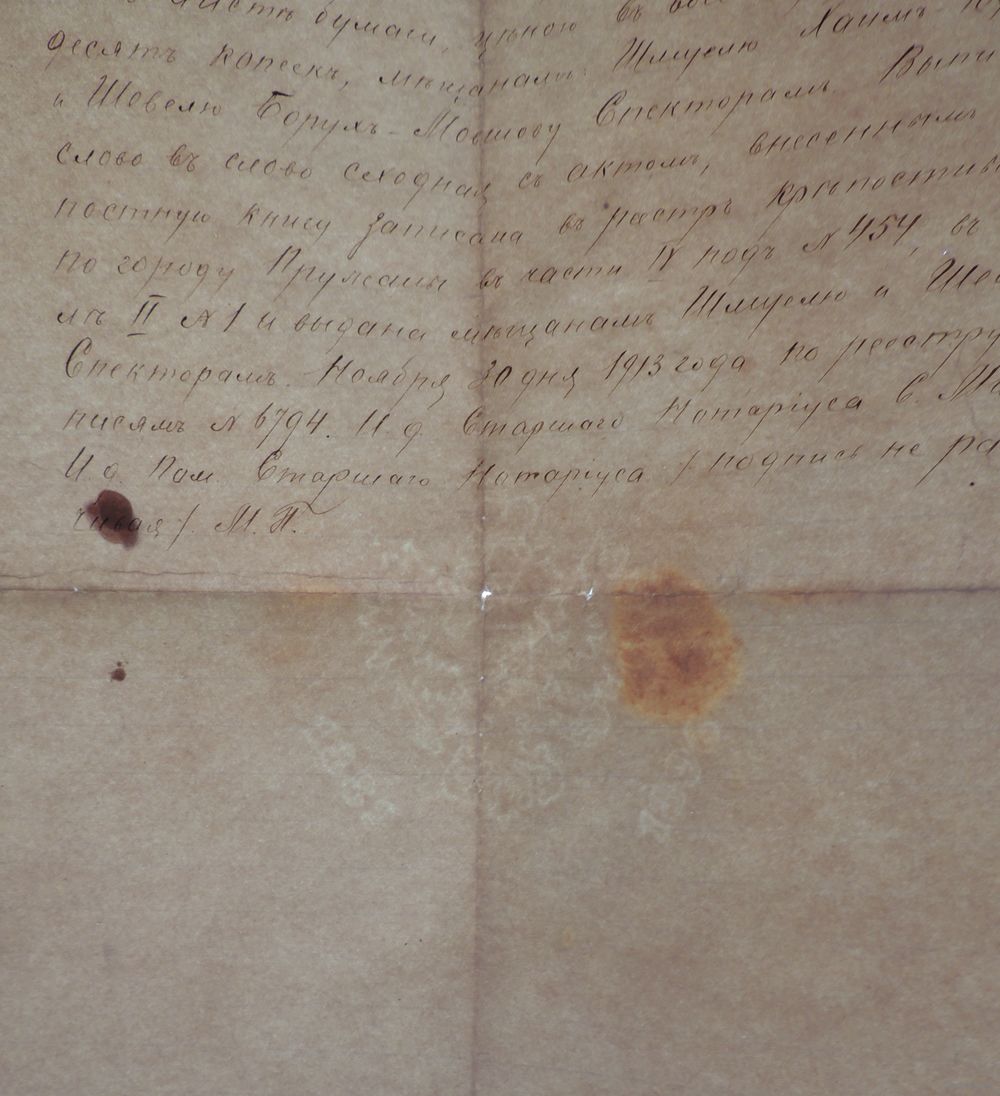 листъ бумаги, цѣною въ
десятъ копѣекъ, мѣщанамъ Шмуелю Хаимъ
и Шевелю Борухъ-Мовшову Спекторамъ. Выпи
слово въ слово сходная съ актомъ, внесеннымъ
постную книгу записана въ реэстръ крѣпостны
по городу Пружаны въ части IV подъ № 454, въ
лъ II № 1 и выдана мѣщанамъ Шмуелю и Шев
Спекторамъ. Ноября 30 дня 1913 года по реестру
писямъ № 6794. И. д. Старшаго Нотаріуса С. Ма
И. д. Пом. Старшаго Нотаріуса /подпись не ра
чивая/. М. П.